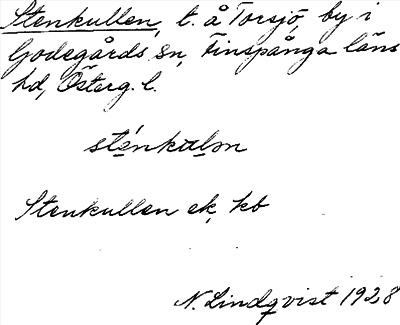 Stenkullen, t. å Torsjö, by i
Godegårds sn, Finspånga läns
hd, Österg. l.
sténkulən
Stenkullen ek, kb
N. Lindqvist 1928